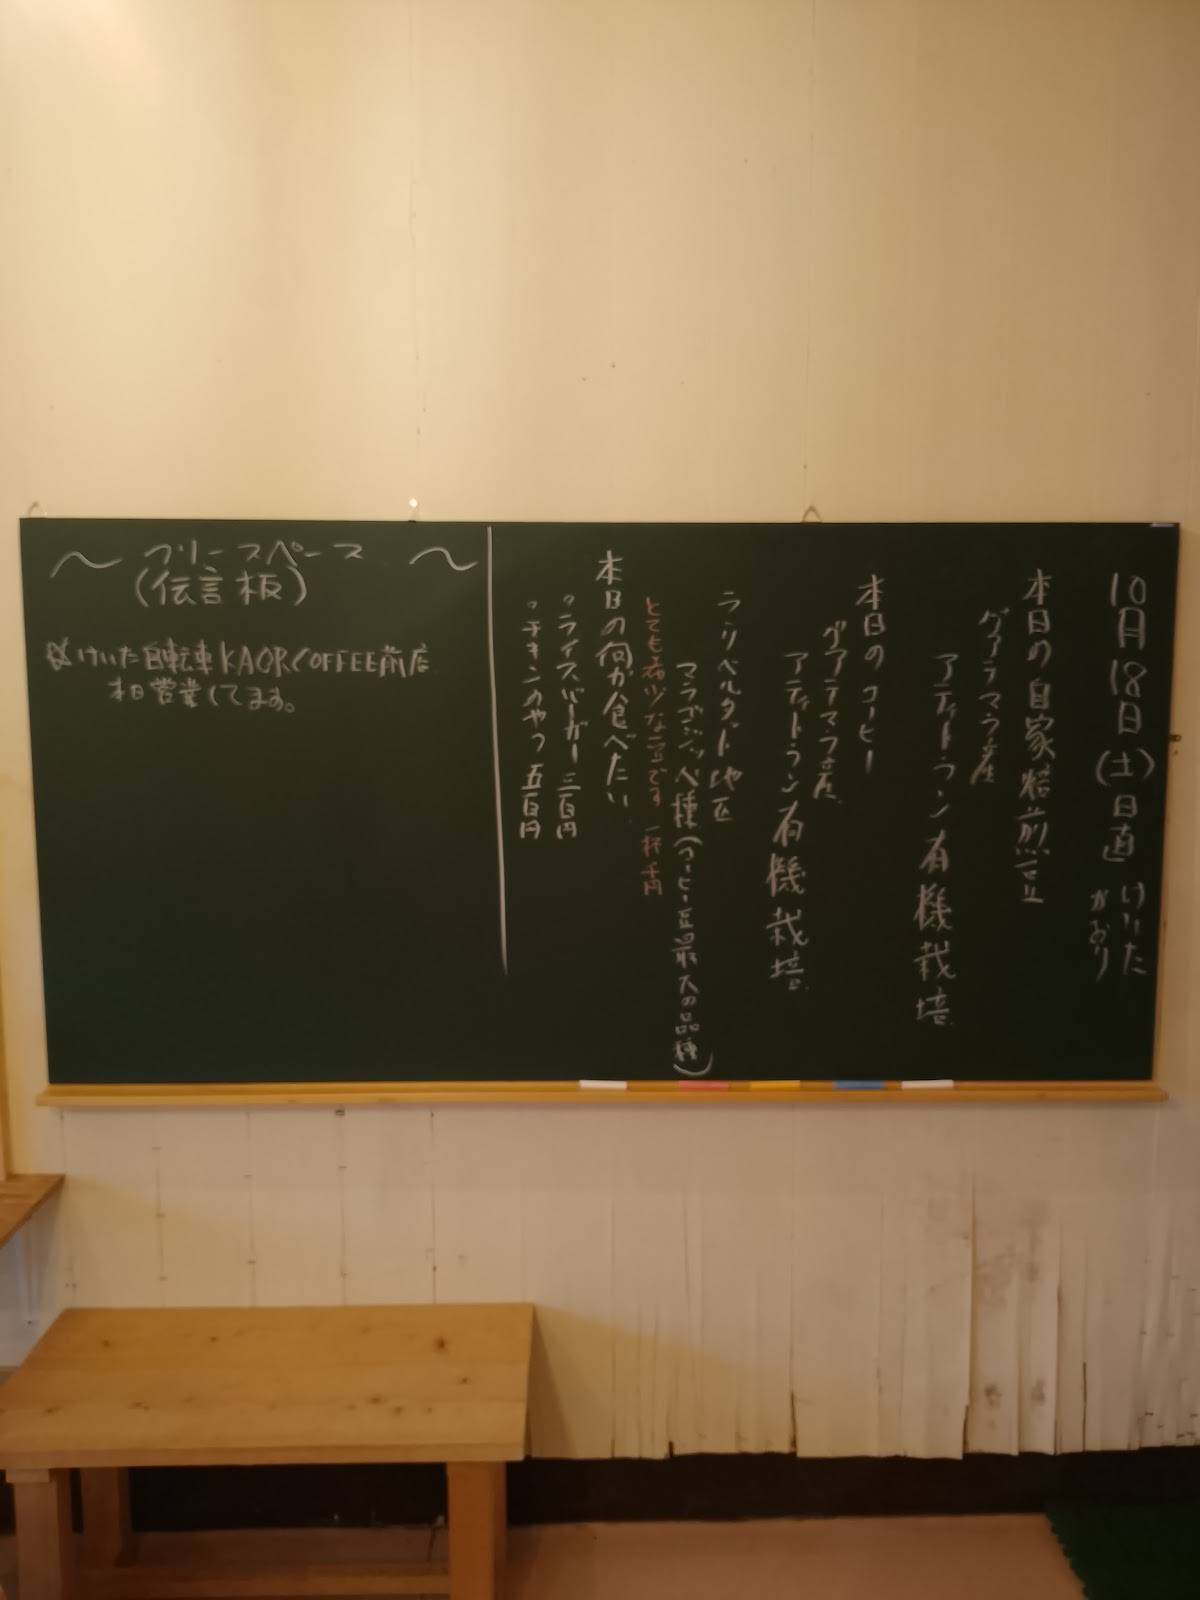 10月18日(土)日直 けいた
かおり
本日の自家焙煎豆
グアテマラ産
アティトラン有機栽培
本日のコーヒー
グアテマラ産
アティトラン有機栽培
ラリベルタット地区
マラゴジッペ種(コーヒー豆最大の品種)
とても希少な豆です 一杯千円
本日の何か食べたい
○ライスバーガー 三百円
○チキンのやつ 五百円
～フリースペース～
(伝言板)
けいた自転車KAORCOFFEE前店
本日営業してます。